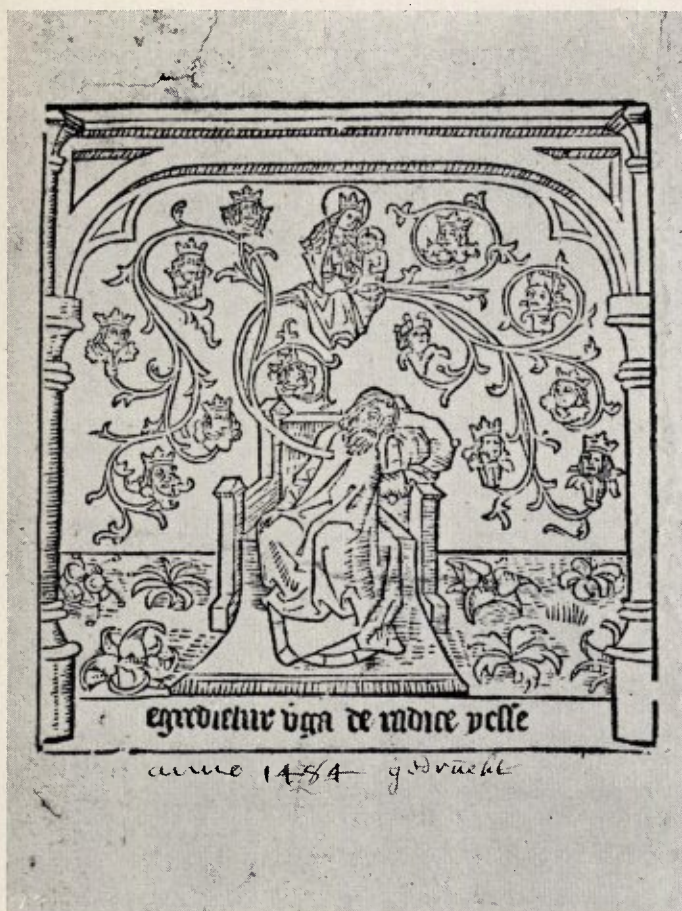 egredietur v̾ga de radice yesse
anno 1484 gedruckt